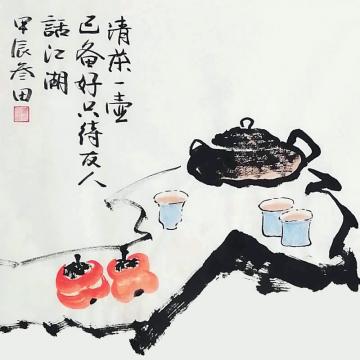 清茶一壶
已备好只待友人
話江湖
甲辰叁田